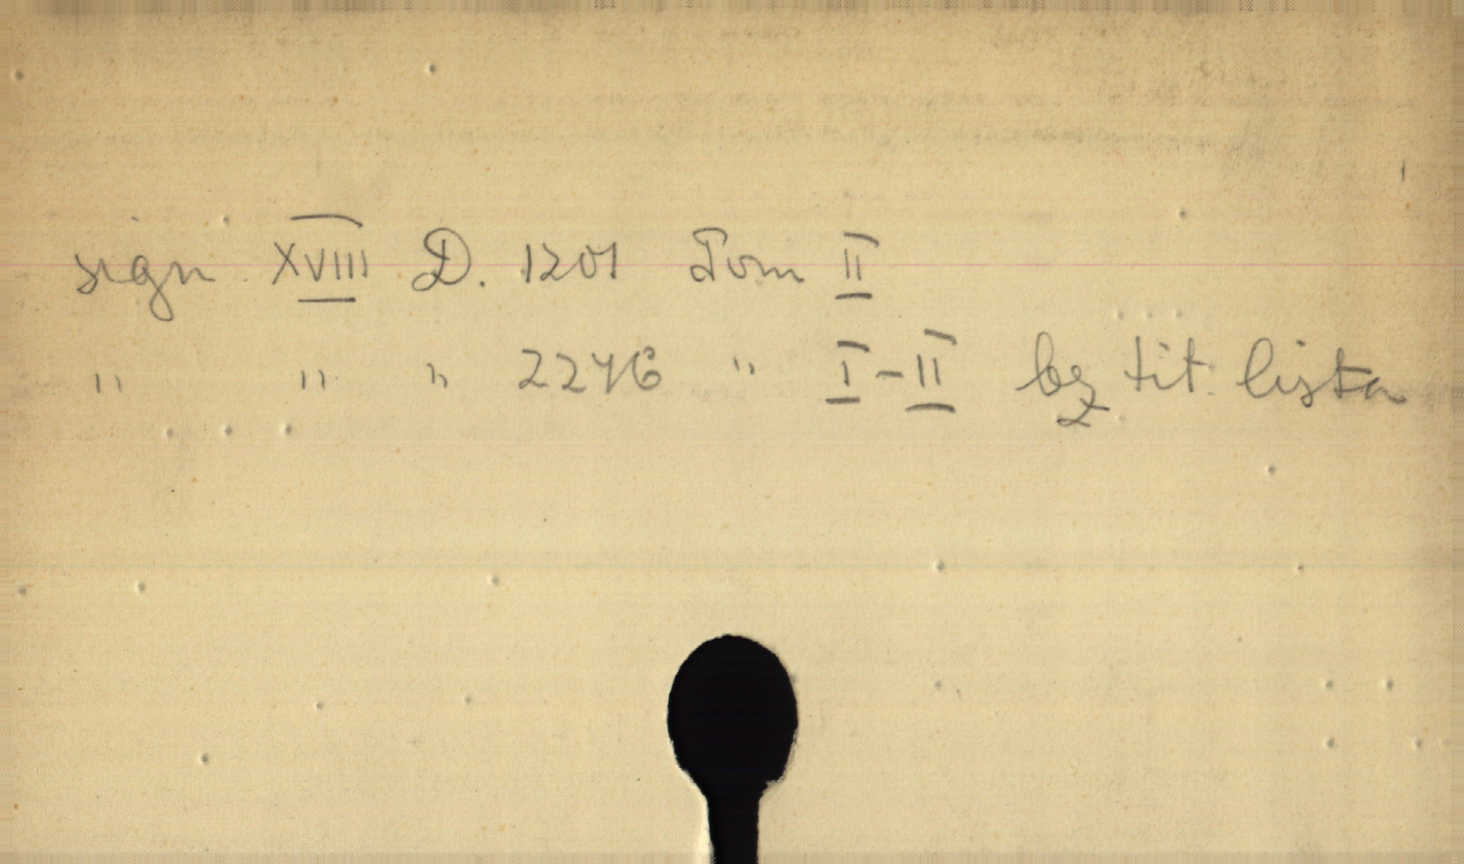 sign XVIII D. 1201 Tom II
" " " 2246 " I-II bez tit. lista